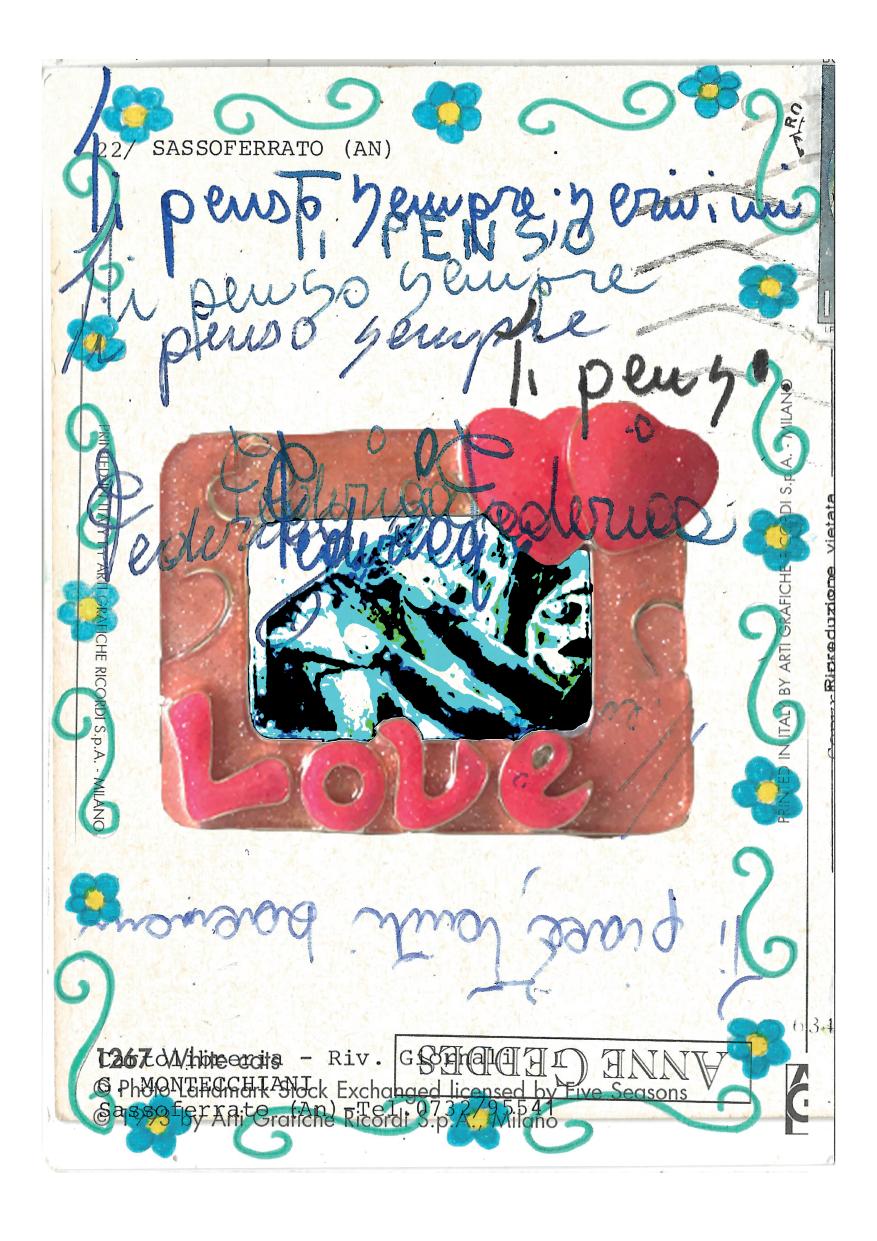 22/ SASSOFERRATO (AN)
Ti penso sempre scrivimi
TI PENSO
Ti penso sempre
Ti penso sempre
Ti penso
Federica
Federica Federica Federica
LOVE
Ti piace tanti baremeni
ANNE GEDDES
1267 White cats
Cartolibreria - Riv. Giornali
G. MONTECCHIANI
© Photo Landmark Stock Exchanged licensed by Five Seasons
Sassoferrato (An)-Tel.0732/95541
© 1993 by Arti Grafiche Ricordi S.p.A., Milano
PRINTED IN ITALY BY ARTI GRAFICHE RICORDI S.p.A. - MILANO
PRINTED IN ITALY BY ARTI GRAFICHE RICORDI S.p.A. - MILANO
Riproduzione vietata